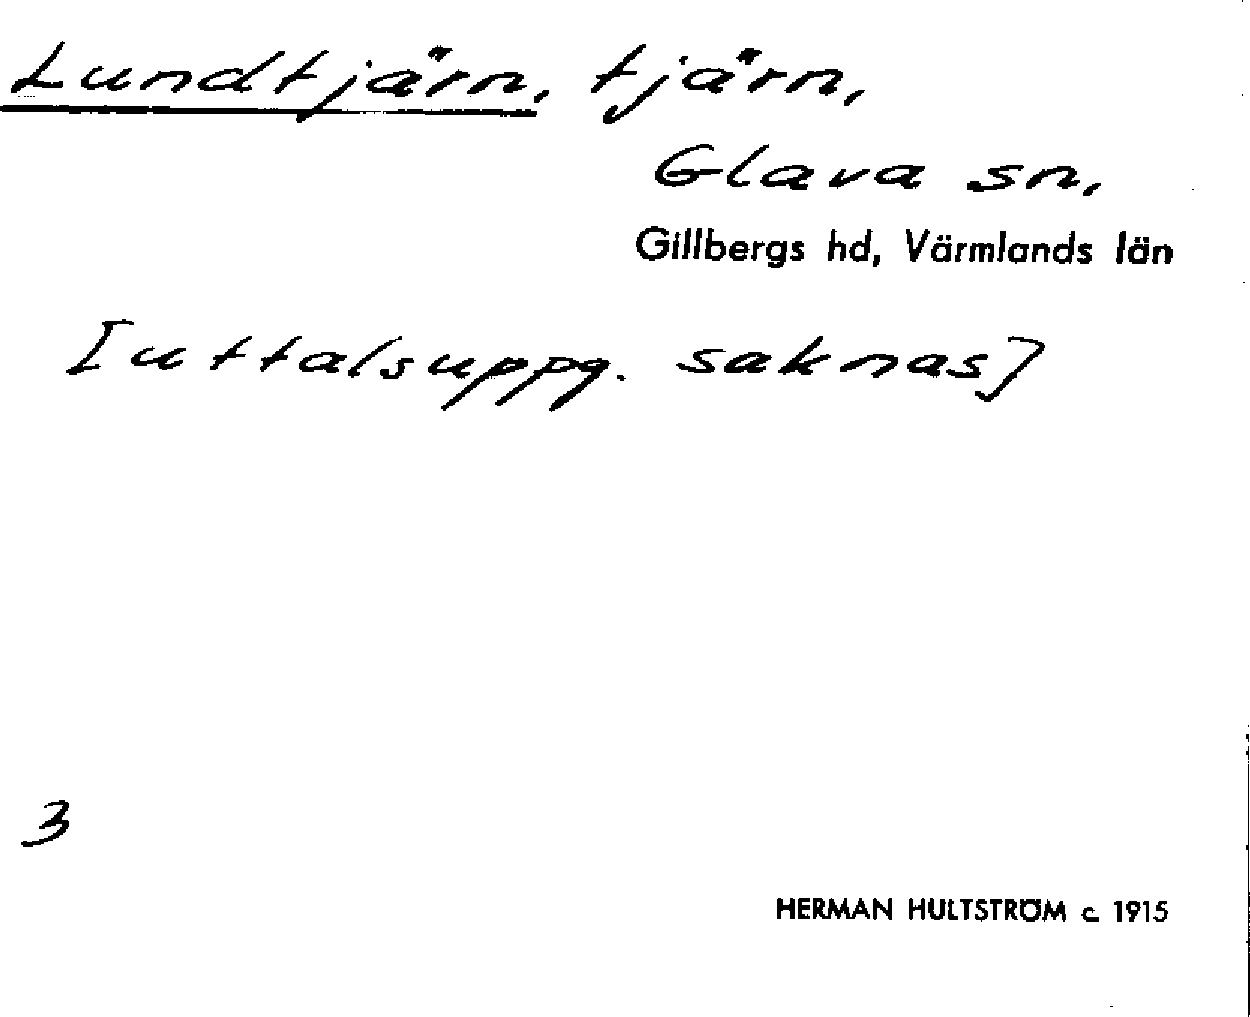 Lundtjärn, tjärn,
Glava sn,
Gillbergs hd, Värmlands län
[uttalsuppg. saknas]
3
HERMAN HULTSTRÖM c 1915